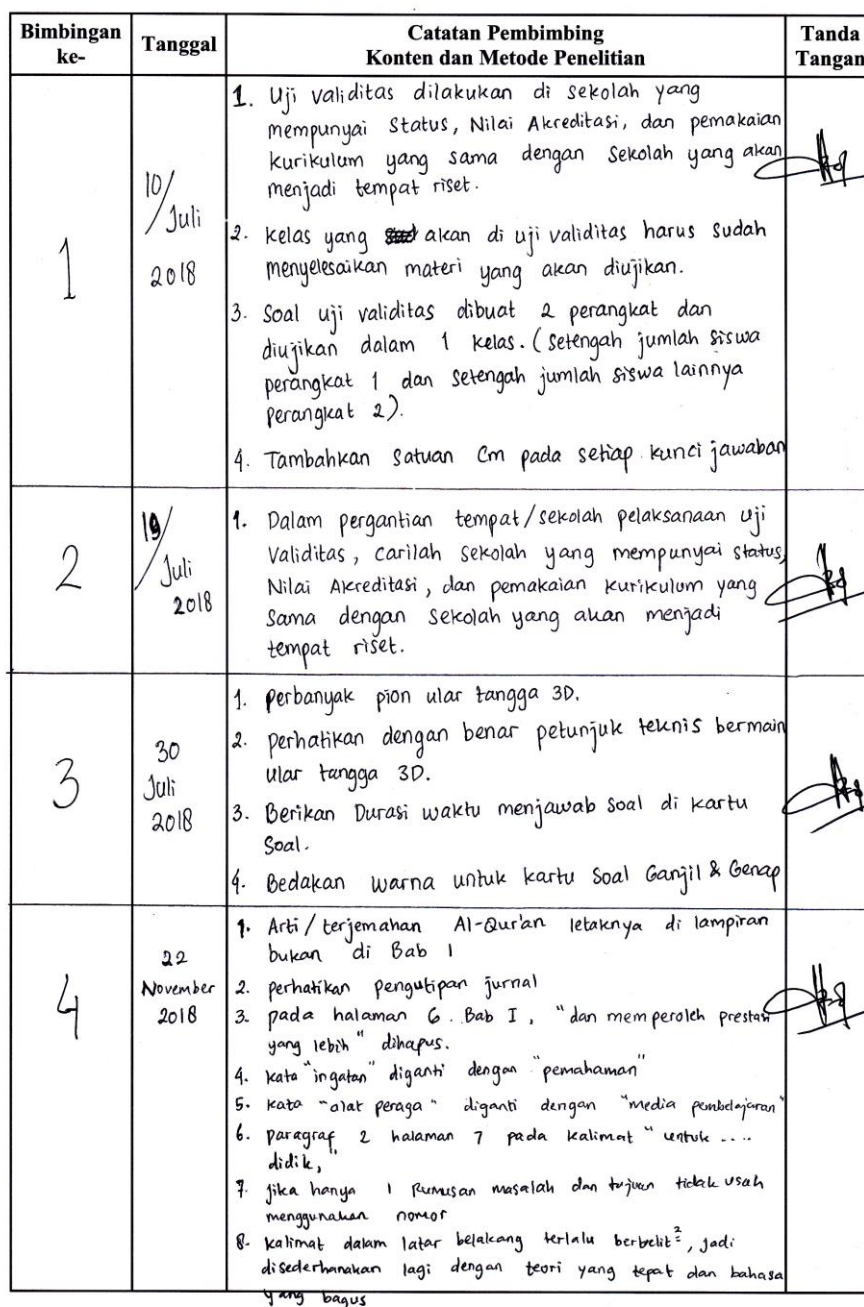 Bimbingan ke-
Tanggal
Catatan Pembimbing
Konten dan Metode Penelitian
Tanda Tangan
1
10/
Juli
2018
1. Uji validitas dilakukan di sekolah yang
mempunyai Status, Nilai Akreditasi, dan pemakaian
kurikulum yang sama dengan Sekolah yang akan
menjadi tempat riset.
2. kelas yang akan di uji validitas harus sudah
menyelesaikan materi yang akan diujikan.
3. Soal uji validitas dibuat 2 perangkat dan
diujikan dalam 1 kelas. (setengah jumlah siswa
perangkat 1 dan setengah jumlah siswa lainnya
perangkat 2).
4. Tambahkan Satuan Cm pada setiap kunci jawaban
2
19/
Juli
2018
1. Dalam pergantian tempat/sekolah pelaksanaan uji
Validitas, carilah sekolah yang mempunyai status,
Nilai Akreditasi, dan pemakaian kurikulum yang
Sama dengan Sekolah yang akan menjadi
tempat riset.
3
30
Juli
2018
1. perbanyak pion ular tangga 3D.
2. perhatikan dengan benar petunjuk teknis bermain
ular tangga 3D.
3. Berikan Durasi waktu menjawab soal di kartu
Soal.
4. Bedakan warna untuk kartu Soal Ganjil & Genap
4
22
November
2018
1. Arti/terjemahan Al-Qur'an letaknya di lampiran
bukan di Bab 1
2. perhatikan pengutipan jurnal
3. pada halaman 6. Bab I, "dan memperoleh prestasi
yang lebih" dihapus.
4. kata "ingatan" diganti dengan "pemahaman"
5. kata "alat peraga" diganti dengan "media pembelajaran"
6. paragraf 2 halaman 7 pada kalimat "untuk ....
didik,"
7. jika hanya 1 Rumusan masalah dan tujuan tidak usah
menggunakan nomor
8. kalimat dalam latar belakang terlalu berbelit², jadi
disederhanakan lagi dengan teori yang tepat dan bahasa
yang bagus